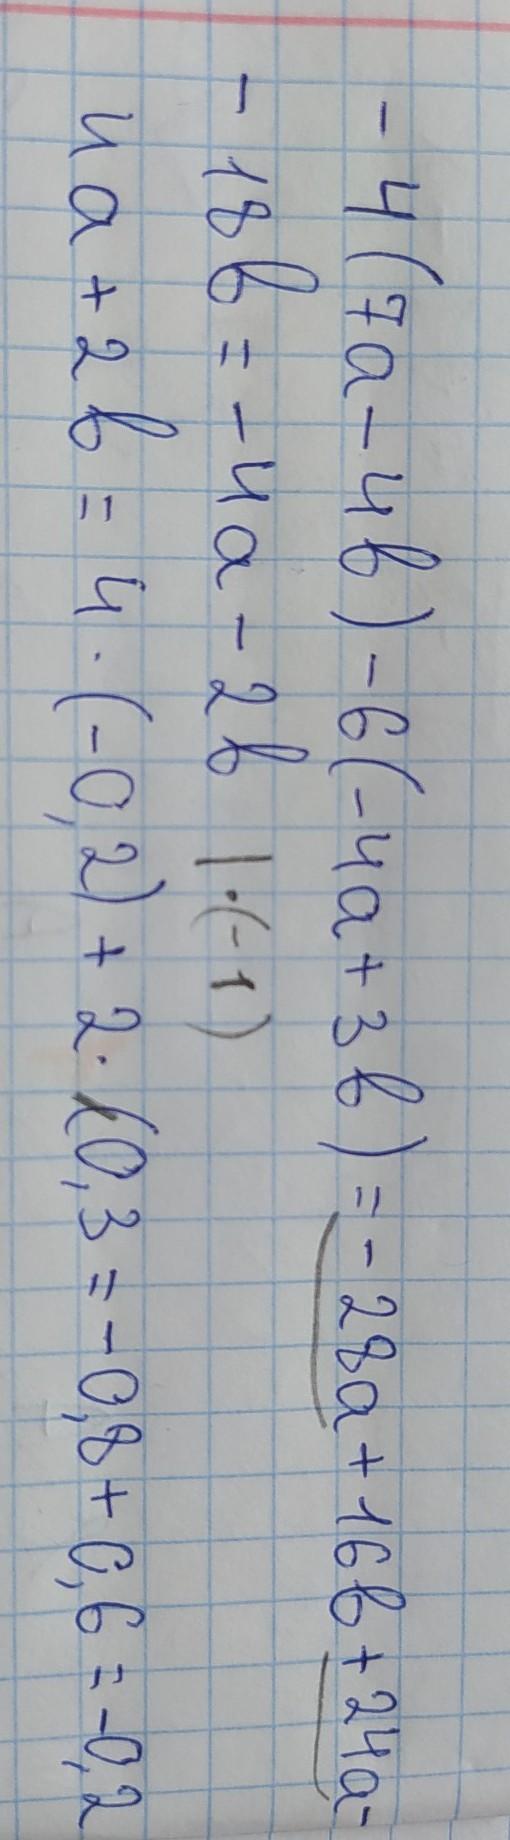 - 4(7a - 4b) - 6(-4a + 3b) = - 28a + 16b + 24a -
- 18b = - 4a - 2b | · (-1)
4a + 2b = 4 · (-0,2) + 2 · (0,3 = -0,8 + 0,6 = -0,2